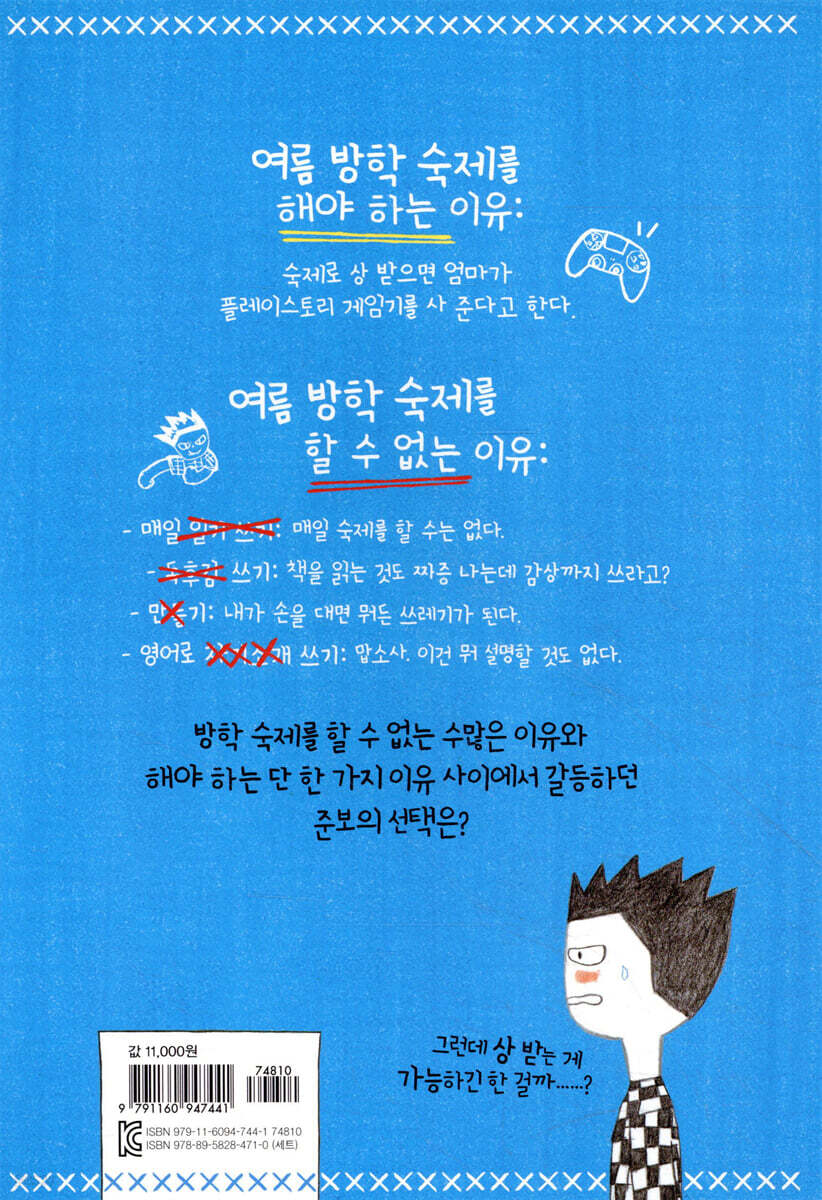 여름 방학 숙제를
해야 하는 이유:
숙제로 상 받으면 엄마가
플레이스토리 게임기를 사 준다고 한다.
여름 방학 숙제를
할 수 없는 이유:
- 매일 일기 쓰기: 매일 숙제를 할 수는 없다.
- 독후감 쓰기: 책을 읽는 것도 짜증 나는데 감상까지 쓰라고?
- 만들기: 내가 손을 대면 뭐든 쓰레기가 된다.
- 영어로 자기소개 쓰기: 맙소사. 이건 뭐 설명할 것도 없다.
방학 숙제를 할 수 없는 수많은 이유와
해야 하는 단 한 가지 이유 사이에서 갈등하던
준보의 선택은?
그런데 상 받는 게
가능하긴 한 걸까......?
값 11,000원
74810
9 791160 947441
ISBN 979-11-6094-744-1 74810
ISBN 978-89-5828-471-0 (세트)